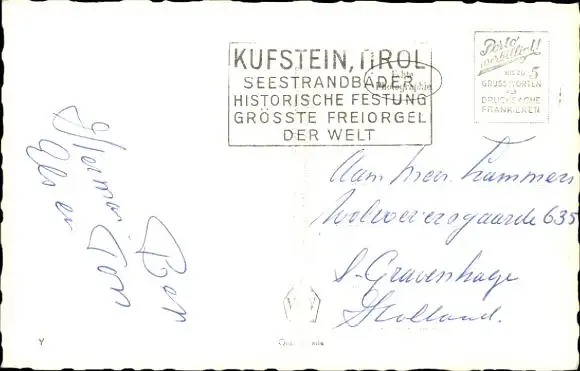 KUFSTEIN, TIROL
SEESTRANDBÄDER
HISTORISCHE FESTUNG
GRÖSSTE FREIORGEL
DER WELT
Echte
Photographie
Porto
verbilligt!
BIS ZU 5
GRUSSWORTEN
ALS
DRUCKSACHE
FRANKIEREN
Aan Mevr. Lammers
Wolweversgaarde 635
S-Gravenhage
Holland.
Herman Ton Ben
Els en
Y